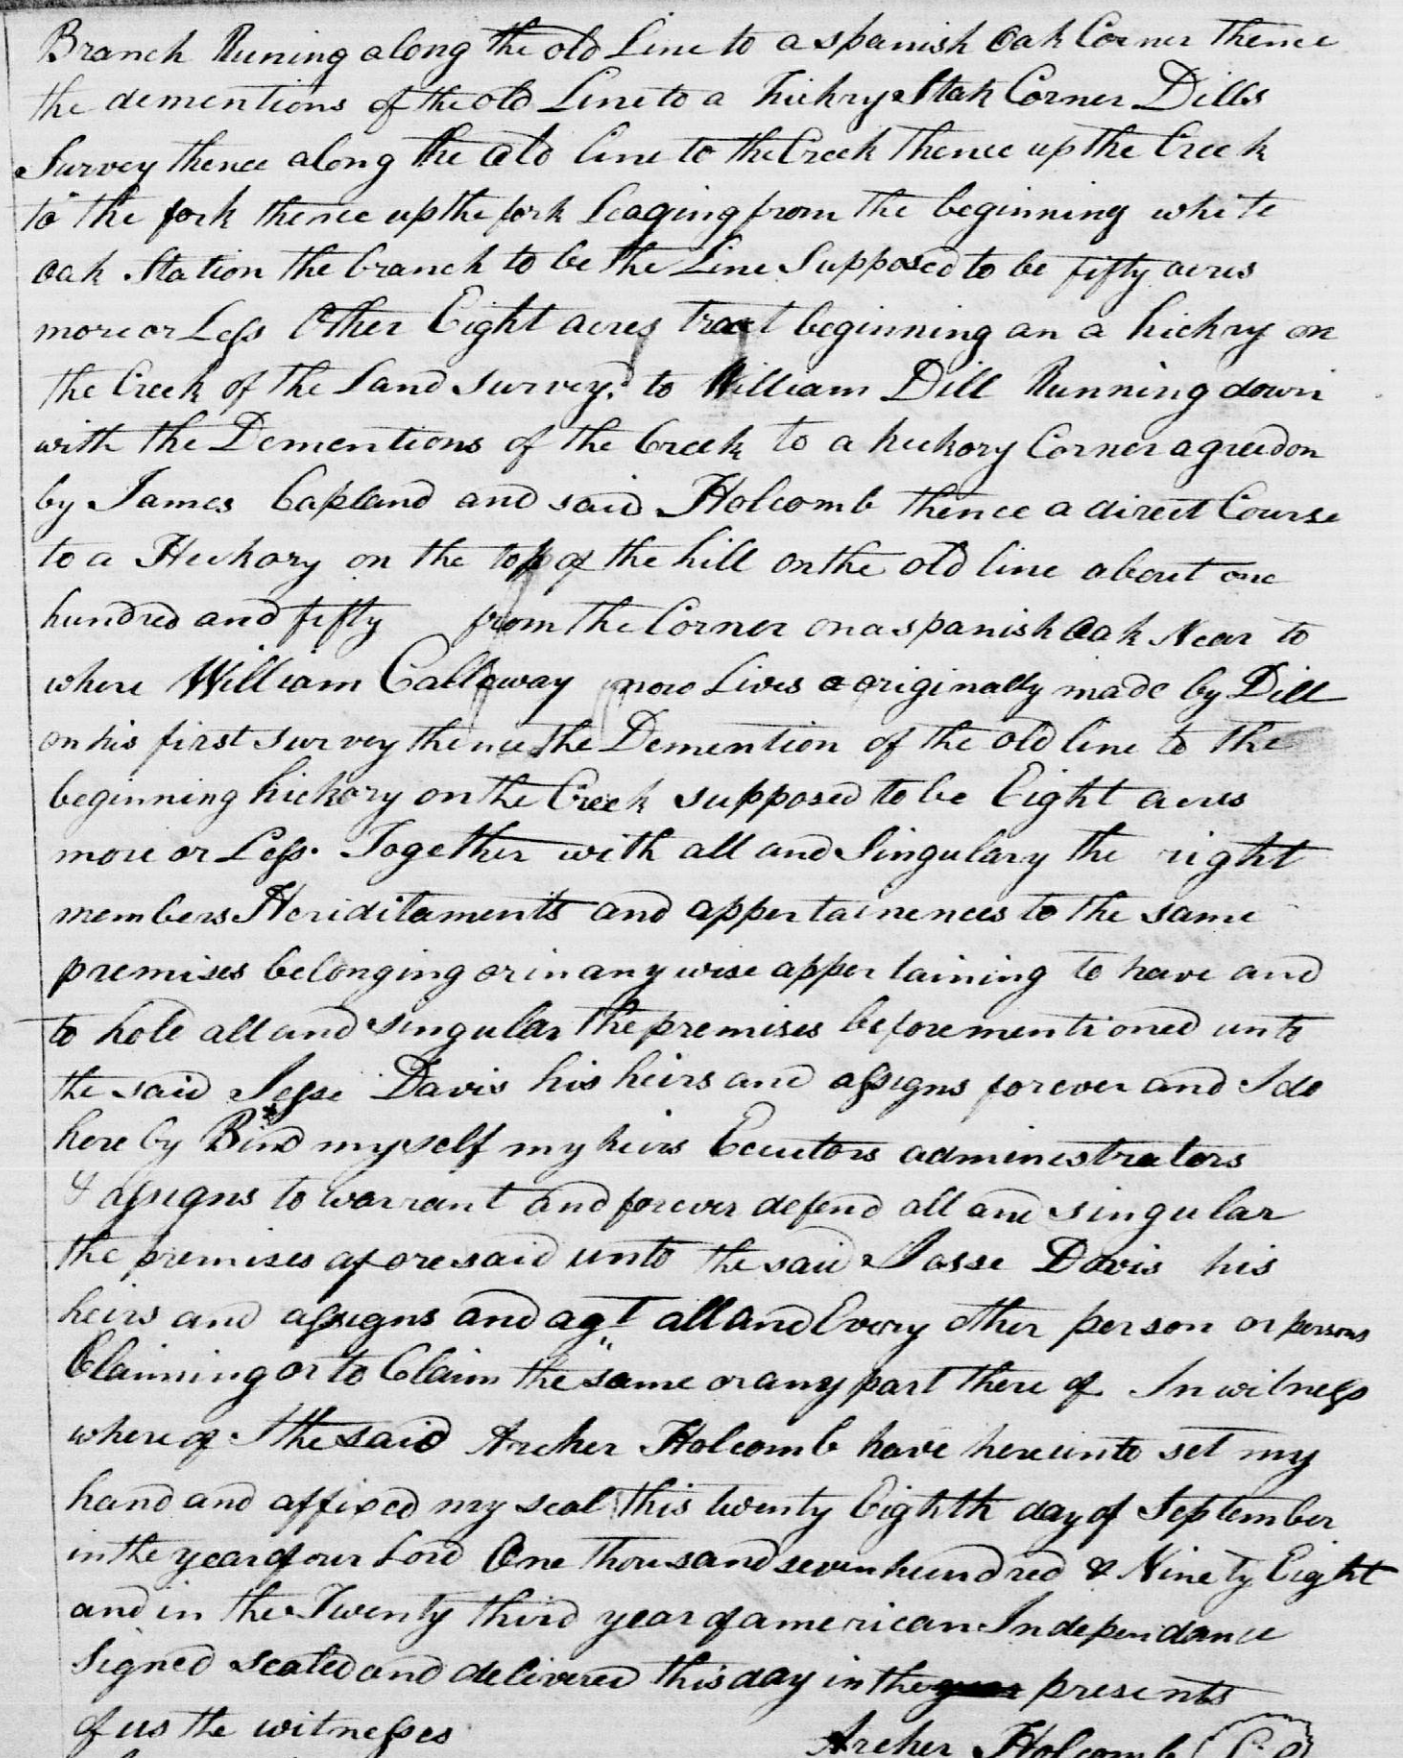 Branch Runing along the old Line to a spanish Oak Corner thence
the dementions of the old Line to a hickry Stak Corner Dills
Survey thence along the old line to the Creek thence up the Creek
to the fork thence up the fork from the beginning white
Oak Station the branch to be the Line Supposed to be fifty acres
more or Less Other Eight acres tract beginning an a hickry on
the Creek of the Land survey.d to William Dill Running down
with the Dementions of the Creek to a hickory Corner agreed on
by James Capland and said Holcomb thence a direct Course
to a Hickory on the top of the hill on the old line about one
hundred and fifty from the Corner on a spanish Oak Near to
where William Calloway now Lives originally made by Dill
on his first survey thence the Demention of the old line to the
beginning hickory on the Creek supposed to be Eight acres
more or Less. Together with all and Singulary the right
members Heriditaments and appertainences to the same
premises belonging or in any wise appertaining to have and
to hold all and singular the premises before mentioned unto
the said Jesse Davis his heirs and assigns forever and I do
here by Bind myself my heirs Ecutors administrators
& assigns to warrant and forever defend all and singular
the premises aforesaid unto the said Jasse Davis his
heirs and assigns and agt all and Every other person or persons
Claiming or to Claim the same or any part there of In witness
where of I the said Archer Holcomb have hereunto set my
hand and affixed my seal this twenty Eighth day of September
in the year of our Lord One thousand seven hundred & Ninety Eight
and in the Twenty third year of american Independance
Signed sealed and delivered this day in the presents
of us the witnesses
Archer Holcomb